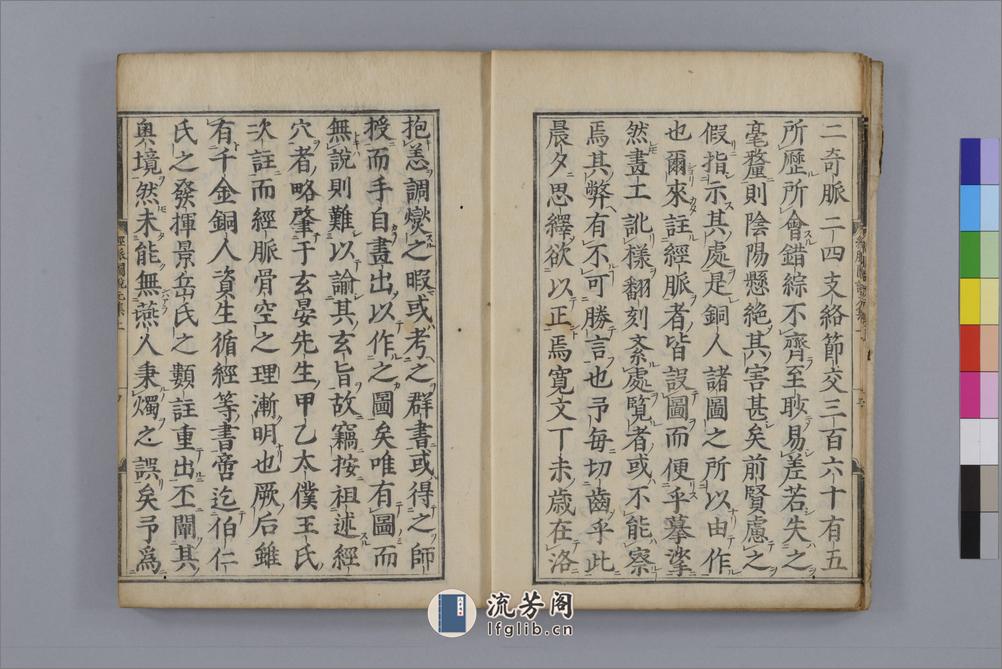 二奇脈二十四支絡節交三百六十有五
所歷所會錯綜不齊至眇易差若失之
毫釐則陰陽懸絶其害甚矣前賢慮之
假指示其處是銅人諸圖之所以由作
也爾來註經脈者皆設圖而便乎摹揅
然畫工訛樣翻刻紊處覽者或不能察
焉其弊有不可勝言也予每切齒乎此
晨夕思繹欲以正焉寛文丁未歳在洛
抱恙調爕之暇或考之群書或得之師
授而手自畫出以作之圖矣唯有圖而
無說則難以諭其玄旨故竊按祖述經
穴者略肇于玄晏先生甲乙太僕王氏
次註而經脈骨空之理漸明也厥后雖
有千金銅人資生循經等書啻迄伯仁
氏之發揮景岳氏之類註重出丕闡其
奥境然未能無燕人秉燭之誤矣予爲
流芳阁
lfglib.cn